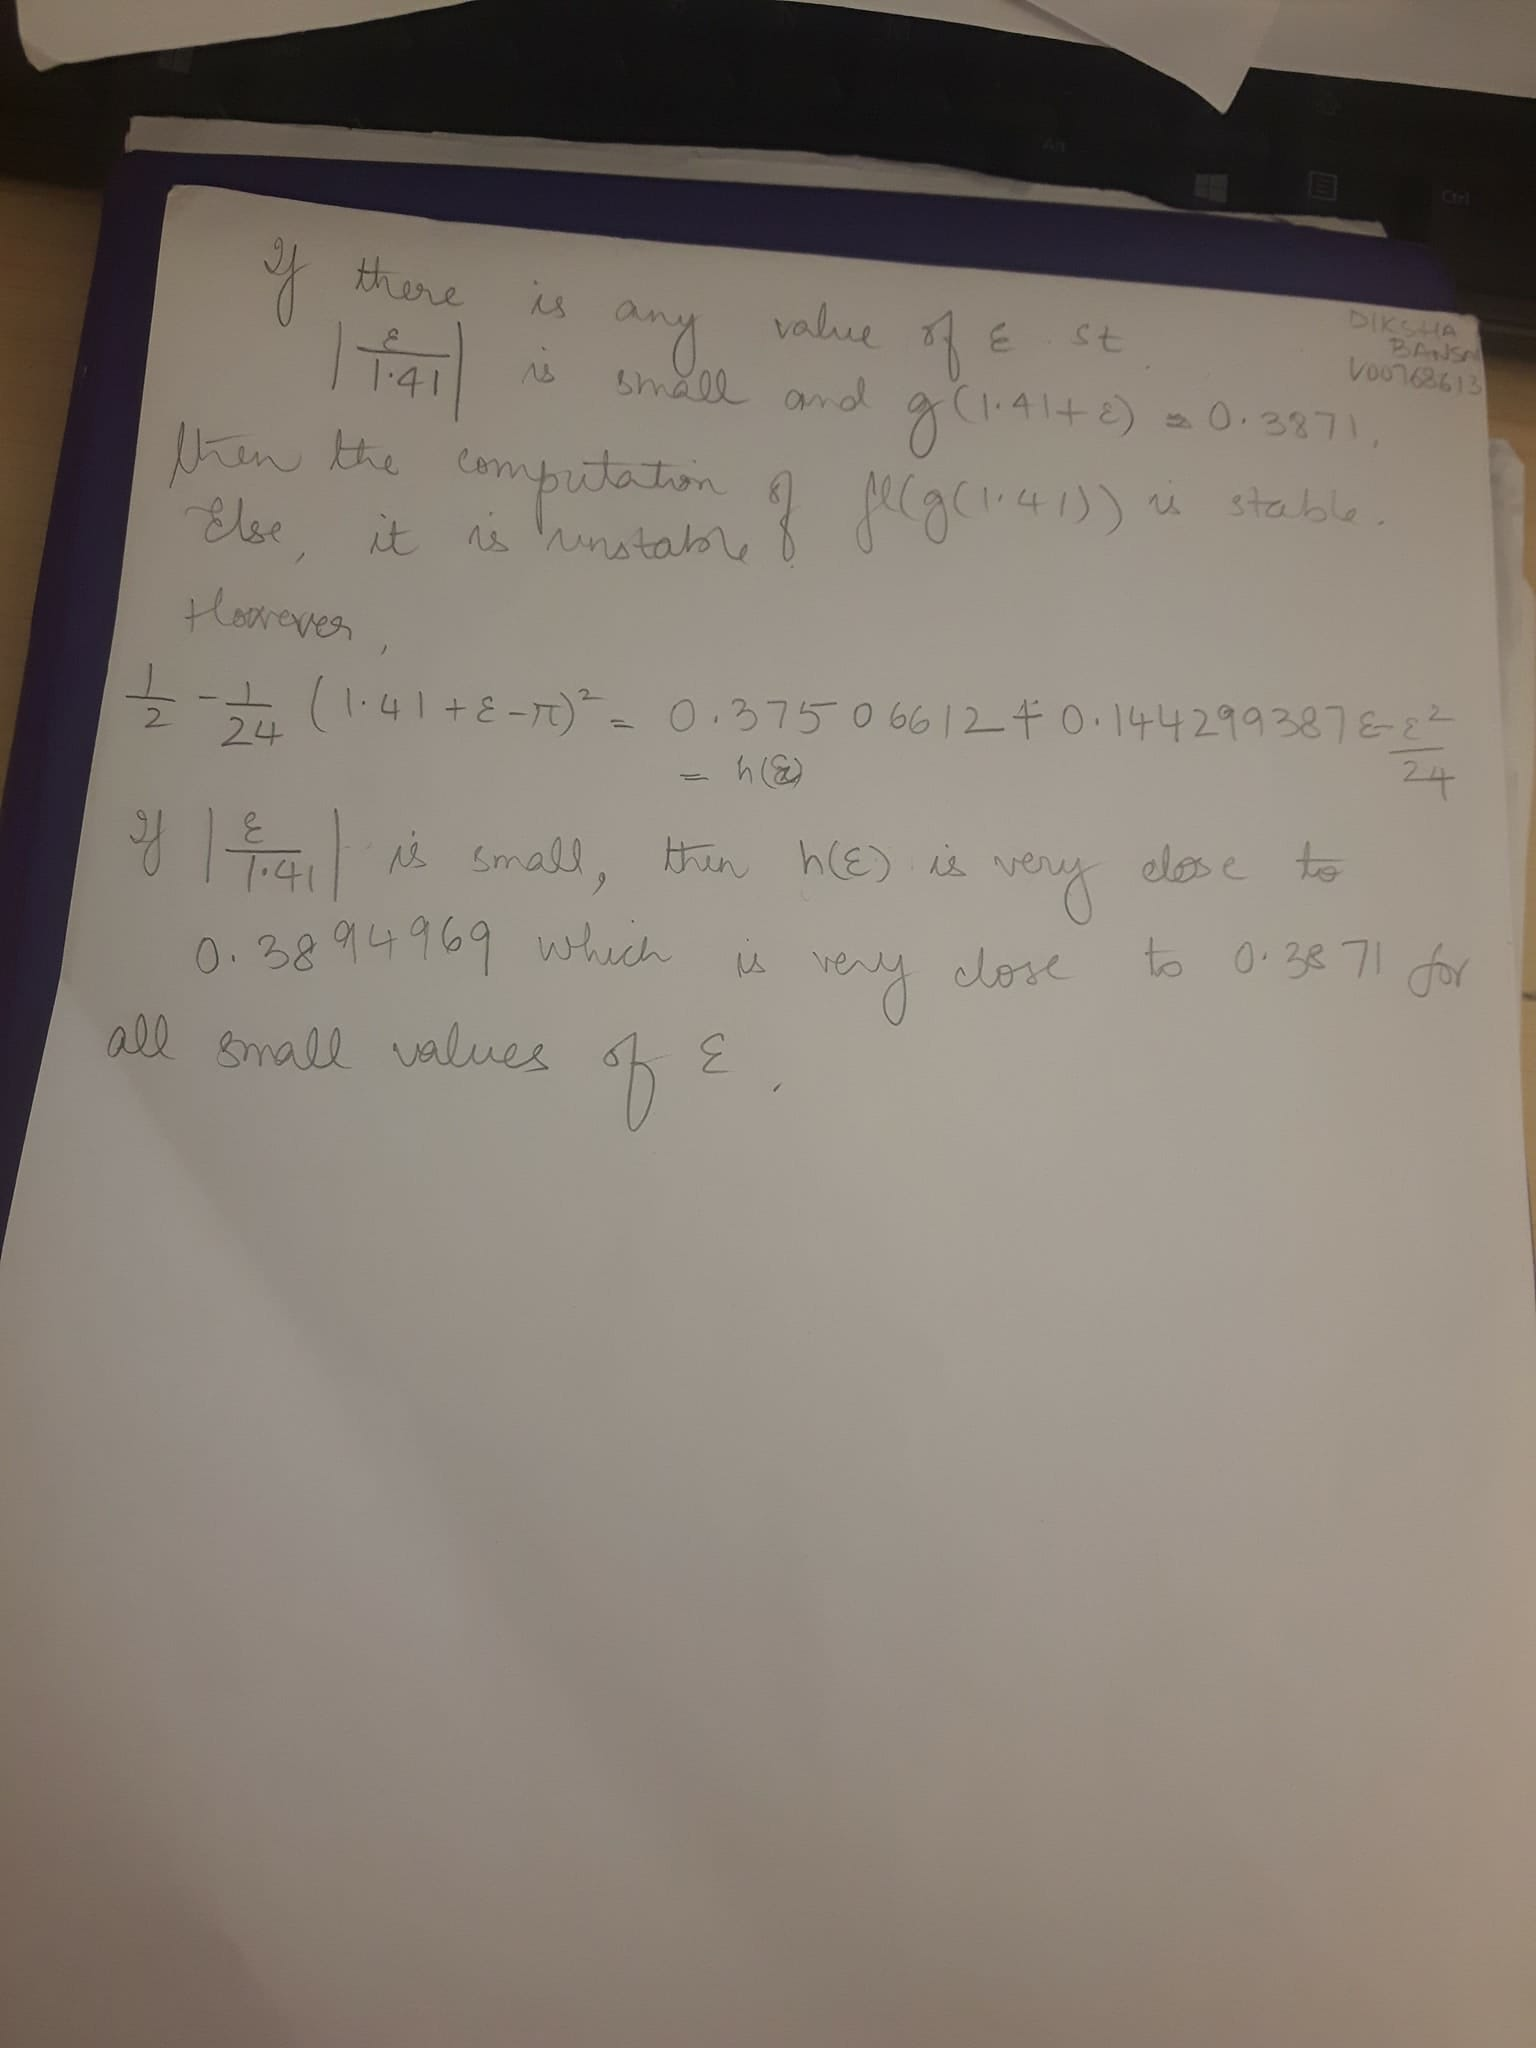 DIKSHA
BANSA
V00768613
If there is any value of ε st
|ε/1.41| is small and g(1.41+ε) ≈ 0.3871,
then the computation of fl(g(1.41)) is stable.
Else, it is unstable.
However,
1/2 - 1/24 (1.41+ε-π)² = 0.37506612 + 0.144299387ε - ε²/24
= h(ε)
If |ε/1.41| is small, then h(ε) is very close to
0.3894969 which is very close to 0.3871 for
all small values of ε.
Ctrl